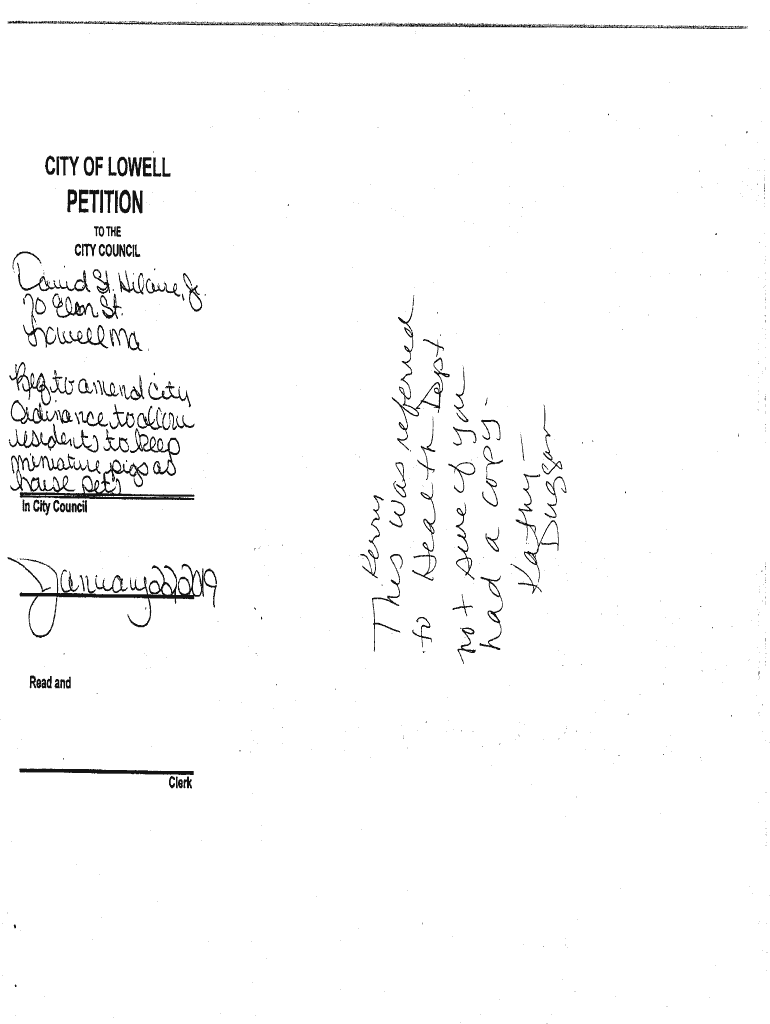 CITY OF LOWELL
PETITION
TO THE
CITY COUNCIL
David St. Hilaire, Jr.
70 Elm St.
Lowell Ma.
Req to amend city
Ordinance to allow
residents to keep
miniature pigs as
house pets
In City Council
January 22, 2019
Read and
Clerk
Kerry
This was referred
to Health Dept.
not sure if you
had a copy.
Kathy -
Duggan